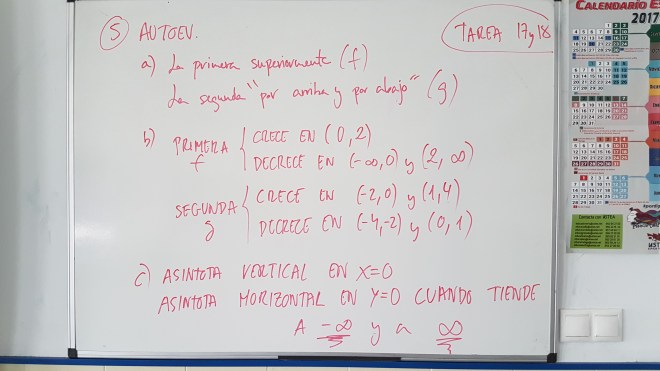 5 AUTOEV.
TAREA 17 y 18
a) La primera superiormente (f)
La segunda "por arriba y por abajo" (g)
b) PRIMERA f { CRECE EN (0,2)
DECRECE EN (-∞,0) y (2,∞)
SEGUNDA g { CRECE EN (-2,0) y (1,4)
DECRECE EN (-4,-2) y (0,1)
c) ASINTOTA VERTICAL EN X=0
ASINTOTA HORIZONTAL EN Y=0 CUANDO TIENDE
A -∞ y a ∞
CALENDARIO
2017